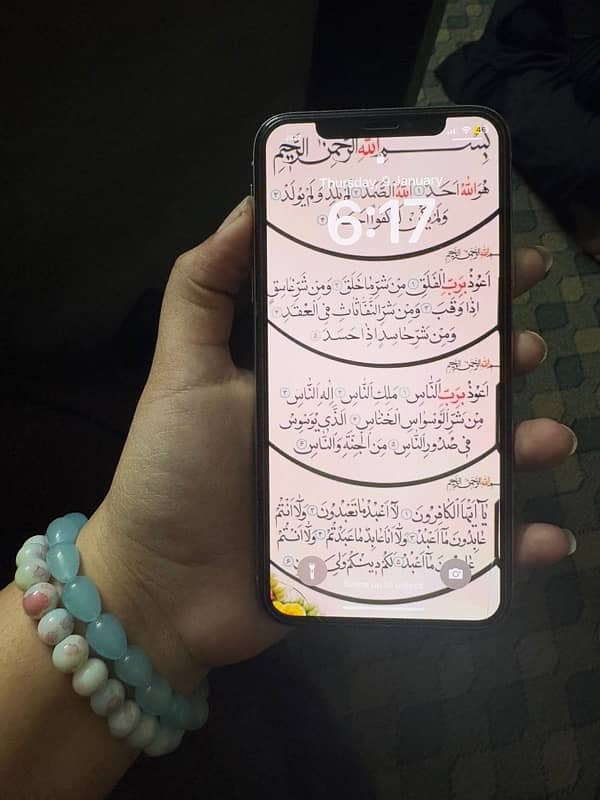 46
بِسْمِ اللهِ الرَّحْمٰنِ الرَّحِيْمِ
Thursday, 9 January
هُوَ اللهُ اَحَدٌ ۱ اَللهُ الصَّمَدُ ۲ لَمْ يَلِدْ وَلَمْ يُولَدْ ۳
6:17
وَلَمْ يَكُنْ كُفُوًا
بسم الله الرحمن الرحيم
اَعُوْذُ بِرَبِّ الْفَلَقِ ۱ مِنْ شَرِّ مَا خَلَقَ ۲ وَمِنْ شَرِّ غَاسِقٍ
اِذَا وَقَبَ ۳ وَمِنْ شَرِّ النَّفّٰثَاتِ فِى الْعُقَدِ ۴
وَمِنْ شَرِّ حَاسِدٍ اِذَا حَسَدَ ۵
بسم الله الرحمن الرحيم
اَعُوْذُ بِرَبِّ النَّاسِ ۱ مَلِكِ النَّاسِ ۲ اِلٰهِ النَّاسِ ۳
مِنْ شَرِّ الْوَسْوَاسِ الْخَنَّاسِ ۴ الَّذِىْ يُوَسْوِسُ
فِىْ صُدُوْرِ النَّاسِ ۵ مِنَ الْجِنَّةِ وَالنَّاسِ ۶
بسم الله الرحمن الرحيم
يٰٓاَيُّهَا الْكَافِرُوْنَ ۱ لَآ اَعْبُدُ مَا تَعْبُدُوْنَ ۲ وَلَآ اَنْتُمْ
عَابِدُوْنَ مَآ اَعْبُدُ ۳ وَلَآ اَنَا عَابِدٌ مَّا عَبَدْتُّمْ ۴ وَلَآ اَنْتُمْ
عَابِدُوْنَ مَآ اَعْبُدُ ۵ لَكُمْ دِيْنُكُمْ وَلِىَ ۶
Swipe up to unlock